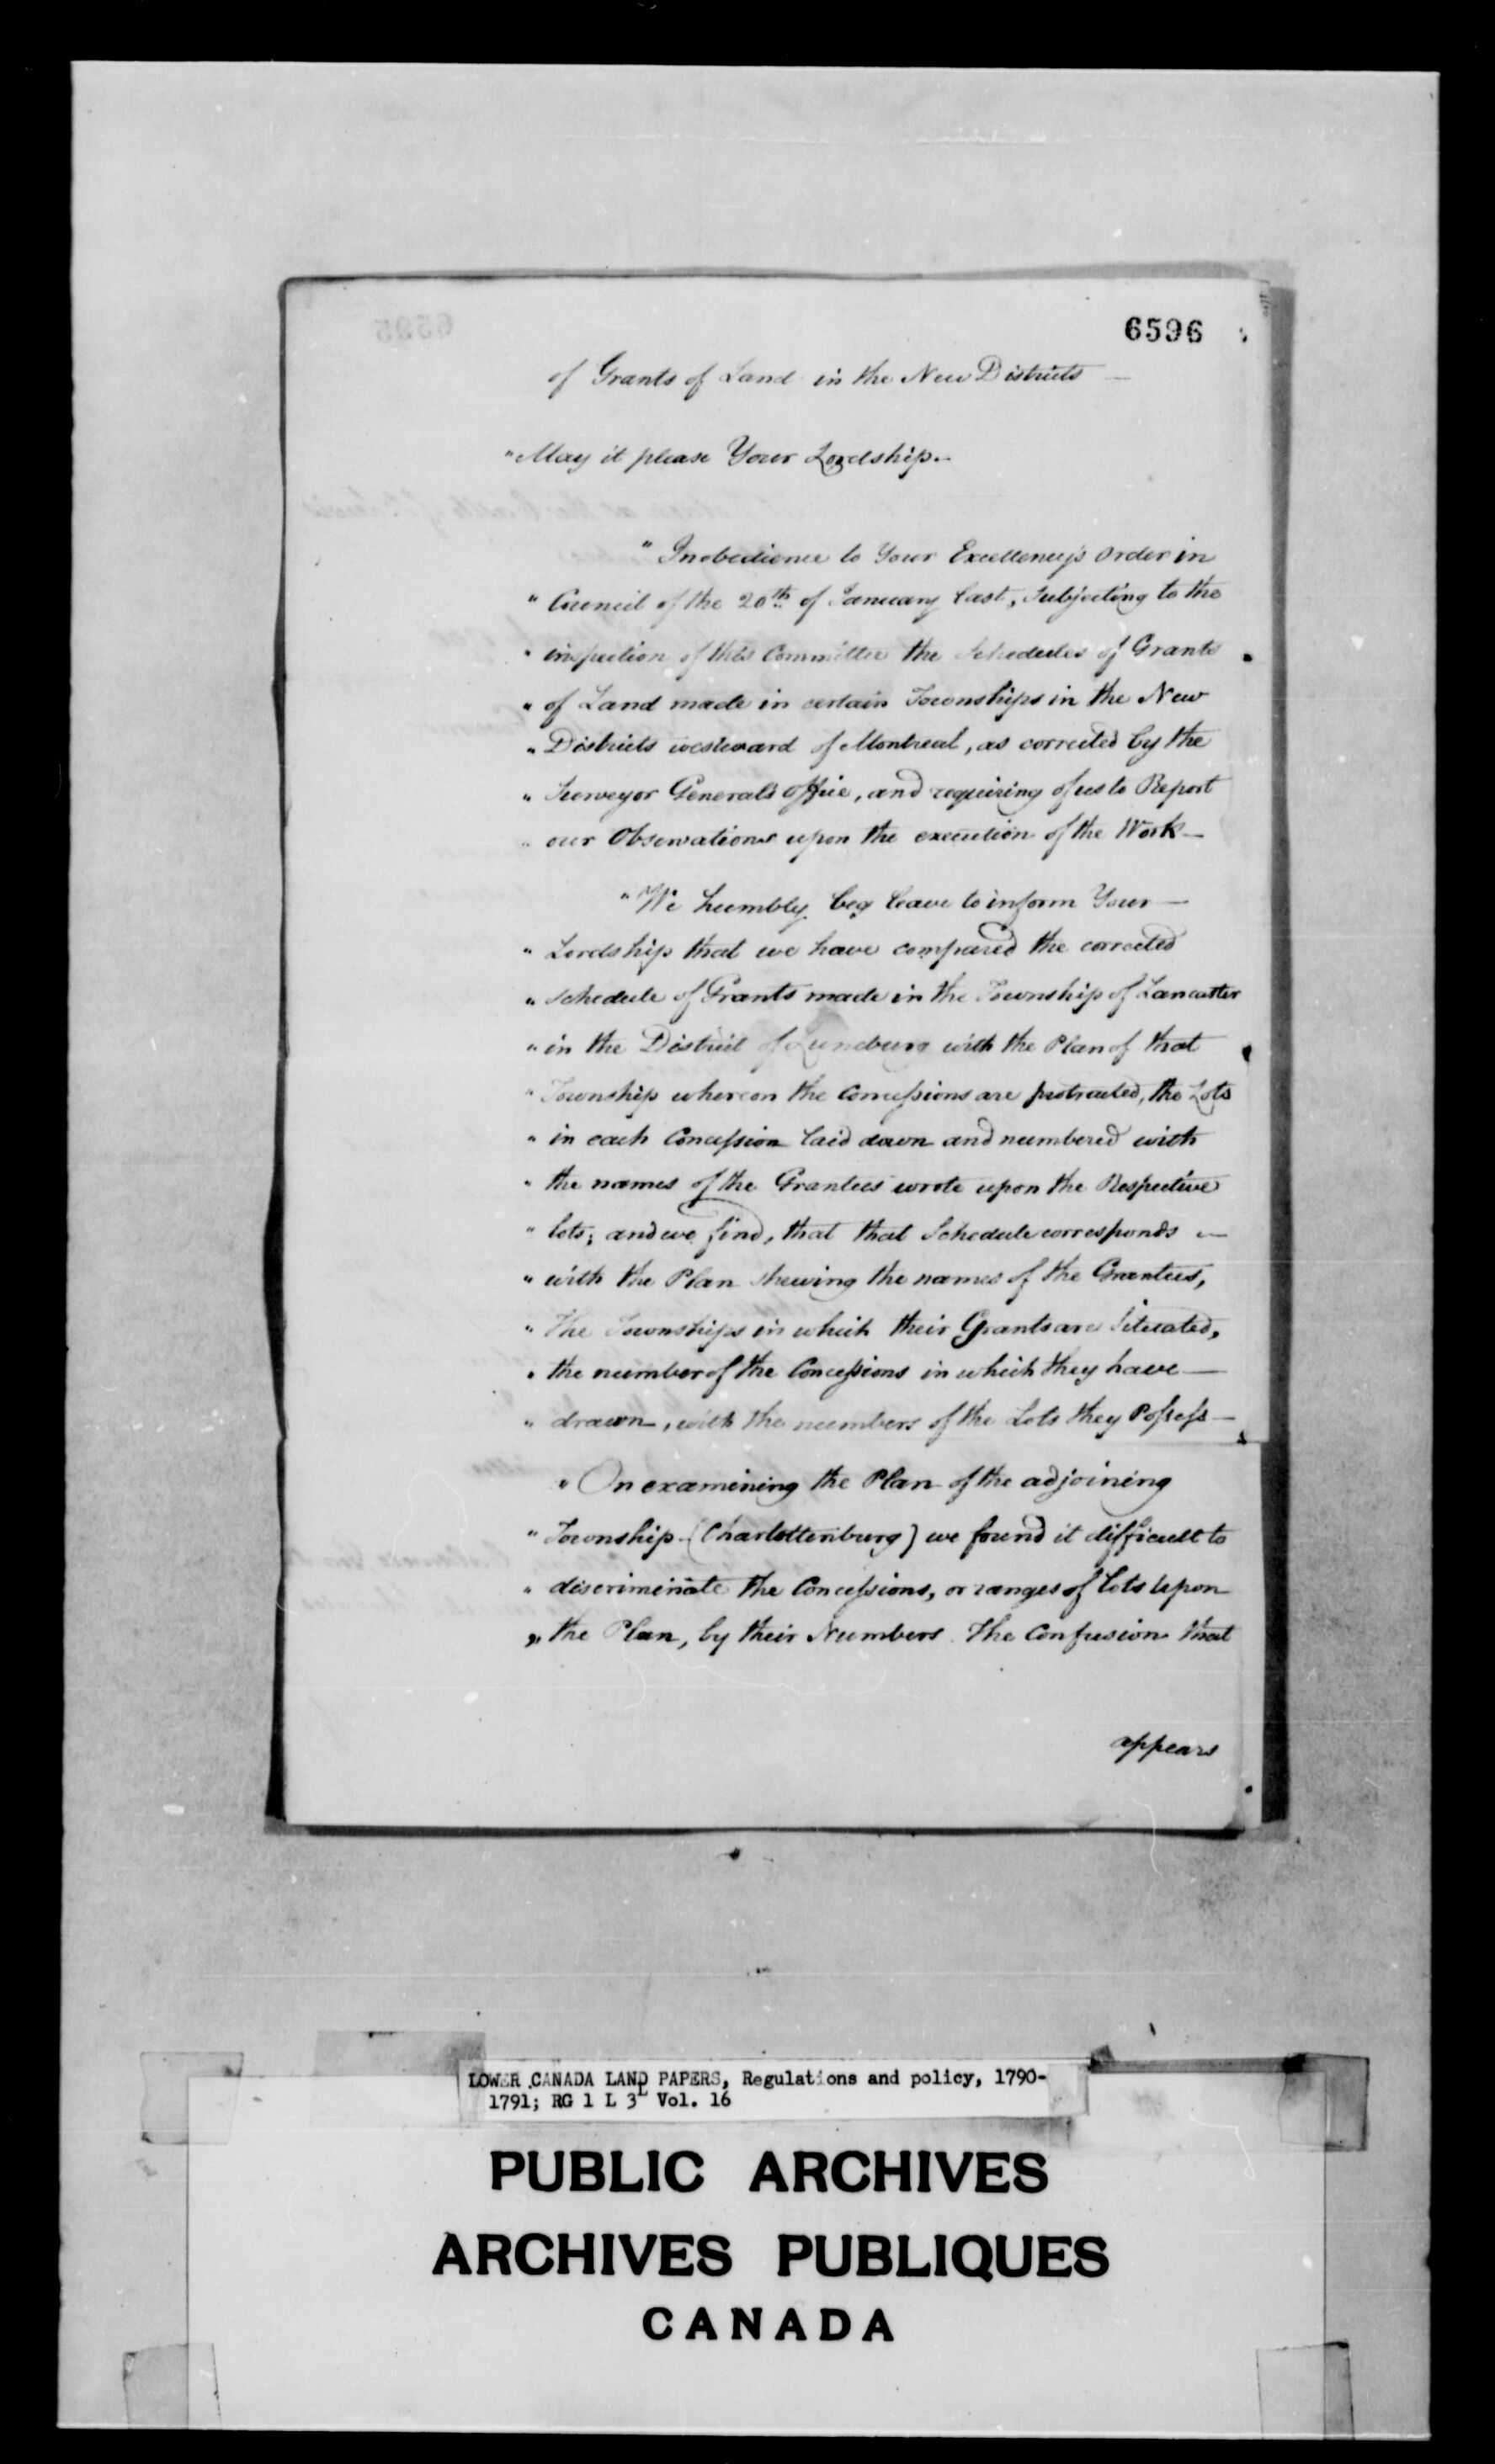 6596
of Grants of Land in the New Districts —
"May it please Your Lordship.—
" In obedience to Your Excellency's Order in
" Council of the 20th of January last, Subjecting to the
" inspection of this Committee the Schedules of Grants
" of Land made in certain Townships in the New
" Districts westward of Montreal, as corrected by the
" Surveyor General's Office, and requiring of us to Report
" our Observations upon the execution of the Work —
" We humbly beg leave to inform Your —
" Lordship that we have compared the corrected
" Schedule of Grants made in the Township of Lancaster
" in the District of Luneburg with the Plan of that
" Township whereon the Concessions are protracted, the Lots
" in each Concession laid down and numbered with
" the names of the Grantees wrote upon the Respective
" lots; and we find, that that Schedule corresponds —
" with the Plan shewing the names of the Grantees,
" the Townships in which their Grants are Situated,
" the number of the Concessions in which they have —
" drawn, with the numbers of the Lots they Possess —
" On examining the Plan of the adjoining
" Township (Charlottenburg) we found it difficult to
" discriminate the Concessions, or ranges of Lots upon
" the Plan, by their Numbers. The Confusion that
appears
LOWER CANADA LAND PAPERS, Regulations and policy, 1790-
1791; RG 1 L 3L Vol. 16
PUBLIC ARCHIVES
ARCHIVES PUBLIQUES
CANADA